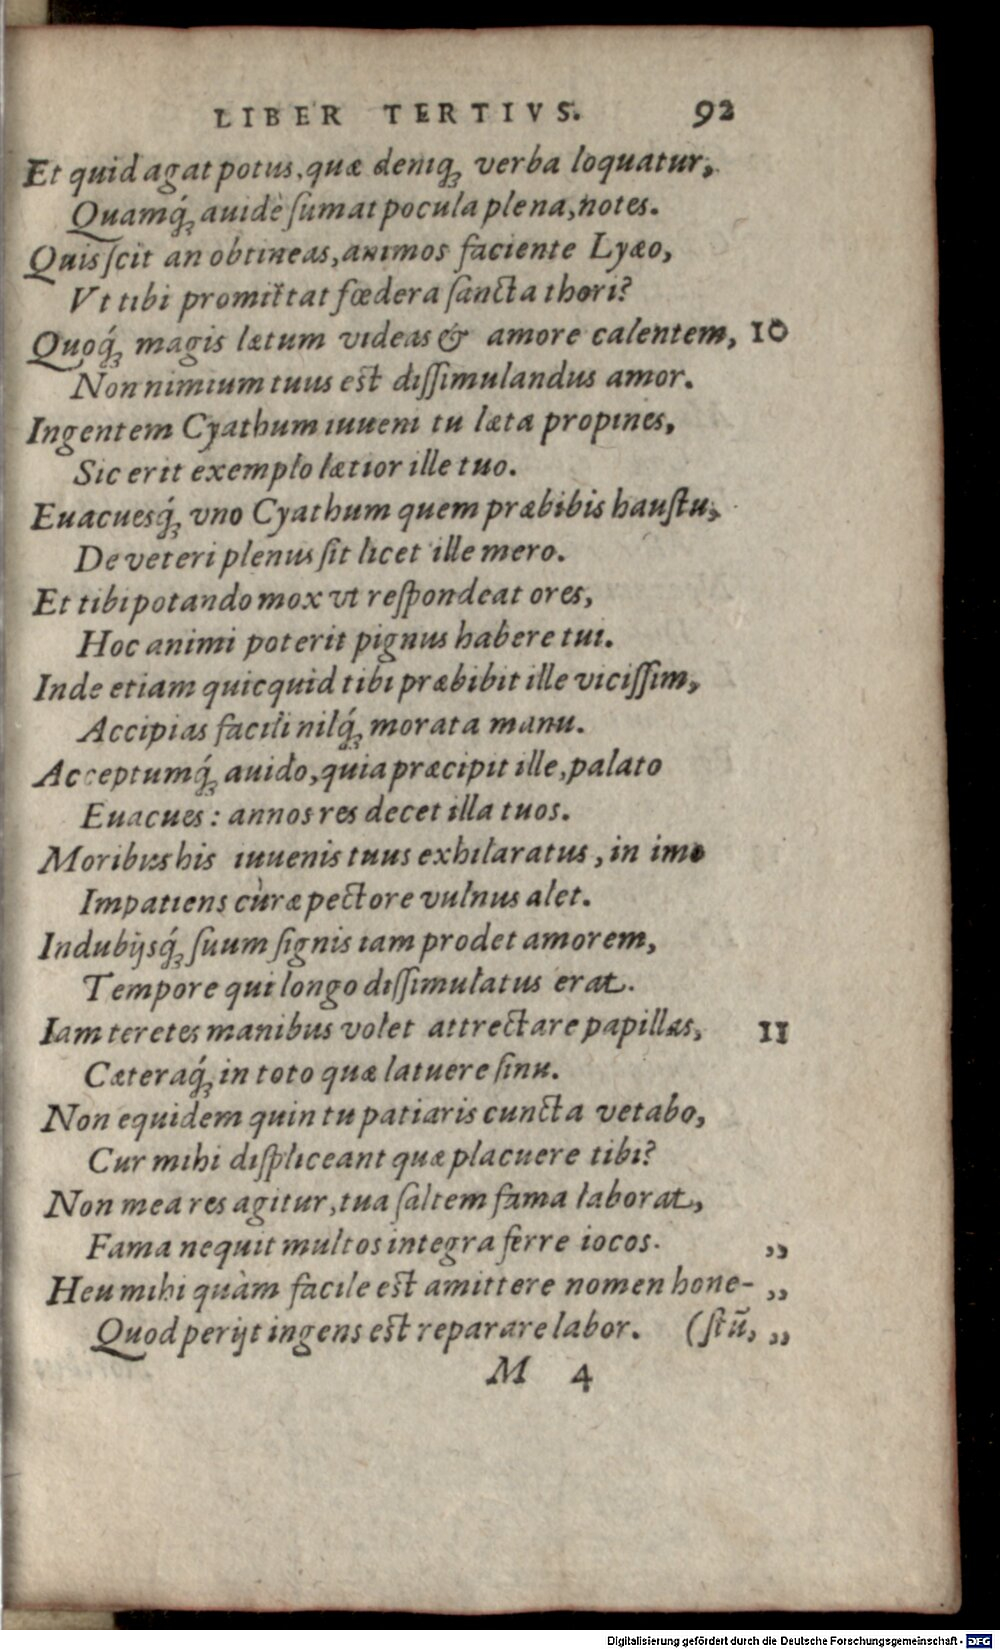 LIBER TERTIVS. 92
Et quid agat potus, quæ deniq́ꝫ verba loquatur,
Quamq́ꝫ auidè ſumat pocula plena, notes.
Quis ſcit an obtineas, animos faciente Lyæo,
Vt tibi promittat fœdera ſancta thori?
Quoq́ꝫ magis lætum videas & amore calentem, 10
Non nimium tuus est diſſimulandus amor.
Ingentem Cyathum iuueni tu læta propines,
Sic erit exemplo lætior ille tuo.
Euacuesq́ꝫ vno Cyathum quem præbibis hauſtu,
De veteri plenus ſit licet ille mero.
Et tibi potando mox vt reſpondeat ores,
Hoc animi poterit pignus habere tui.
Inde etiam quicquid tibi præbibit ille viciſſim,
Accipias facili nilq́ꝫ morata manu.
Acceptumq́ꝫ auido, quia præcipit ille, palato
Euacues: annos res decet illa tuos.
Moribus his iuuenis tuus exhilaratus, in imo
Impatiens curæ pectore vulnus alet.
Indubijsq́ꝫ ſuum ſignis iam prodet amorem,
Tempore qui longo diſſimulatus erat.
Iam teretes manibus volet attrectare papillas, 11
Cæteraq́ꝫ in toto quæ latuere ſinu.
Non equidem quin tu patiaris cuncta vetabo,
Cur mihi diſpliceant quæ placuere tibi?
Non mea res agitur, tua ſaltem fama laborat,
Fama nequit multos integra ferre iocos. „
Heu mihi quàm facile est amittere nomen hone- „
Quod perijt ingens est reparare labor. (ſtū, „
M 4
Digitalisierung gefördert durch die Deutsche Forschungsgemeinschaft - DFG